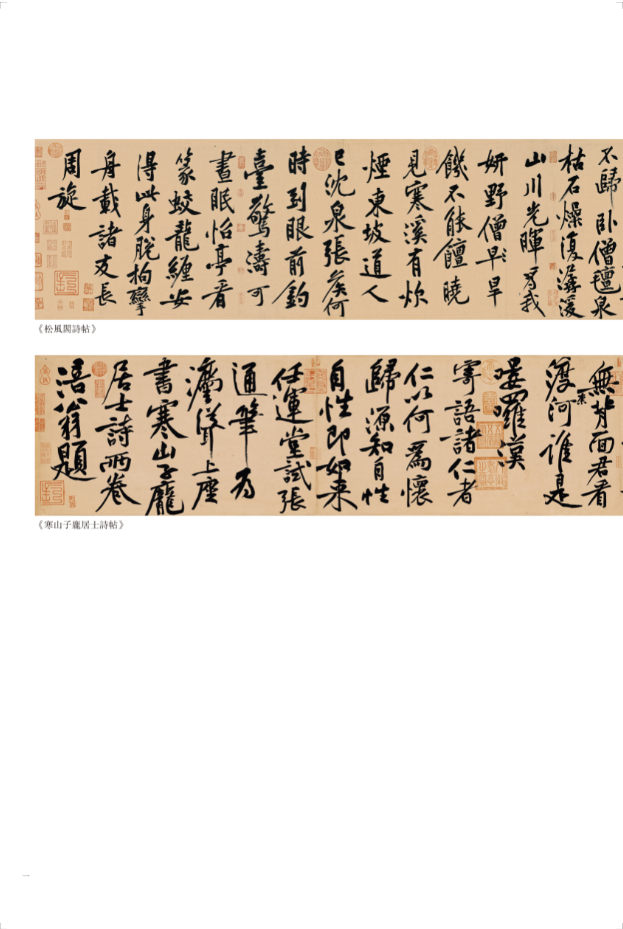 不歸卧僧氊泉
枯石燥復潺湲
山川光暉為我
妍野僧早旱
饑不能饘曉
見寒溪有炊
煙東坡道人
已沈泉張侯何
時到眼前釣
臺驚濤可
晝眠怡亭看
篆蛟龍纏安
得此身脫拘攣
舟載諸友長
周旋
《松風閣詩帖》
無背面君看
渡河誰是
羅漢
寄語諸仁者
仁以何為懷
歸源知自性
自性即如来
任運堂試張
通筆為
法聳上座
書寒山子龐
居士詩兩卷
涪翁題
《寒山子龐居士詩帖》